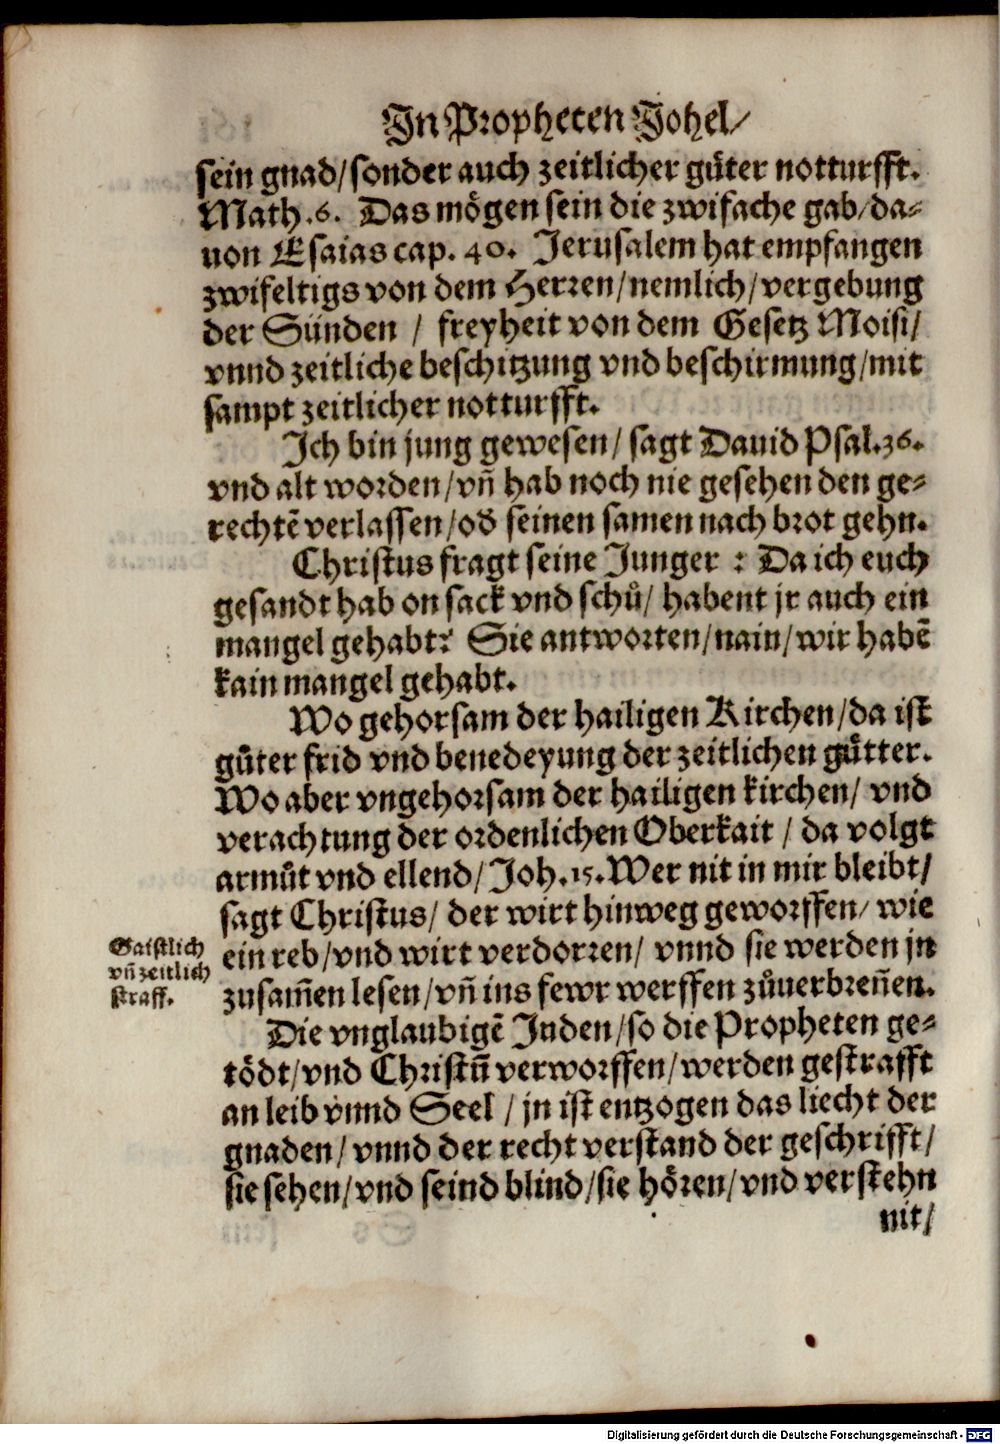 In Propheten Johel/
sein gnad/sonder auch zeitlicher gůter notturfft.
Math.6. Das mögen sein die zwifache gab/da-
uon Esaias cap. 40. Jerusalem hat empfangen
zwifeltigs von dem Herren/nemlich/vergebung
der Sünden / freyheit von dem Gesetz Moisi/
vnnd zeitliche beschitzung vnd beschirmung/mit
sampt zeitlicher notturfft.
Ich bin jung gewesen/ sagt Dauid Psal.36.
vnd alt worden/vñ hab noch nie gesehen den ge-
rechtē verlassen/od seinen samen nach brot gehn.
Christus fragt seine Junger : Da ich euch
gesandt hab on sack vnd schů/ habent jr auch ein
mangel gehabt? Sie antworten/nain/wir habē
kain mangel gehabt.
Wo gehorsam der hailigen Kirchen/da ist
gůter frid vnd benedeyung der zeitlichen gůtter.
Wo aber vngehorsam der hailigen kirchen/ vnd
verachtung der ordenlichen Oberkait / da volgt
armůt vnd ellend/Joh.15.Wer nit in mir bleibt/
sagt Christus/ der wirt hinweg geworffen/ wie
ein reb/vnd wirt verdorren/ vnnd sie werden jn
zusam̄en lesen/vñ ins fewr werffen zůuerbreñen.
Gaistlich
vñ zeitlich
straff.
Die vnglaubigē Juden/so die Propheten ge-
tödt/vnd Christū verworffen/werden gestrafft
an leib vnnd Seel / jn ist entzogen das liecht der
gnaden/ vnnd der recht verstand der geschrifft/
sie sehen/vnd seind blind/sie hören/vnd verstehn
nit/
Digitalisierung gefördert durch die Deutsche Forschungsgemeinschaft - DFG